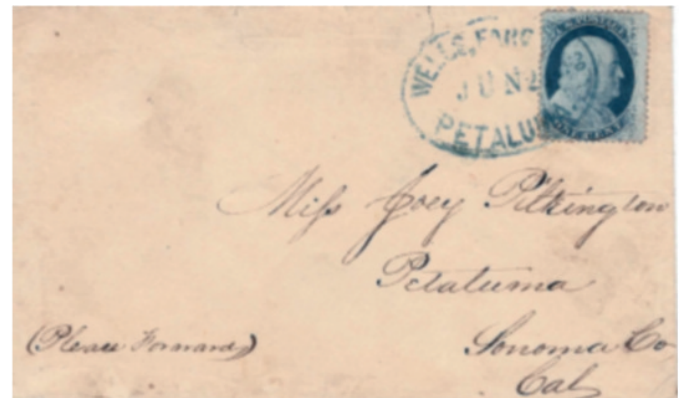 WELLS, FARG
JUN 2
PETALU
U.S. POSTAGE
ONE CENT
Miss Joey Pilkington
Petaluma
Sonoma Co
Cal
(Please Forward)